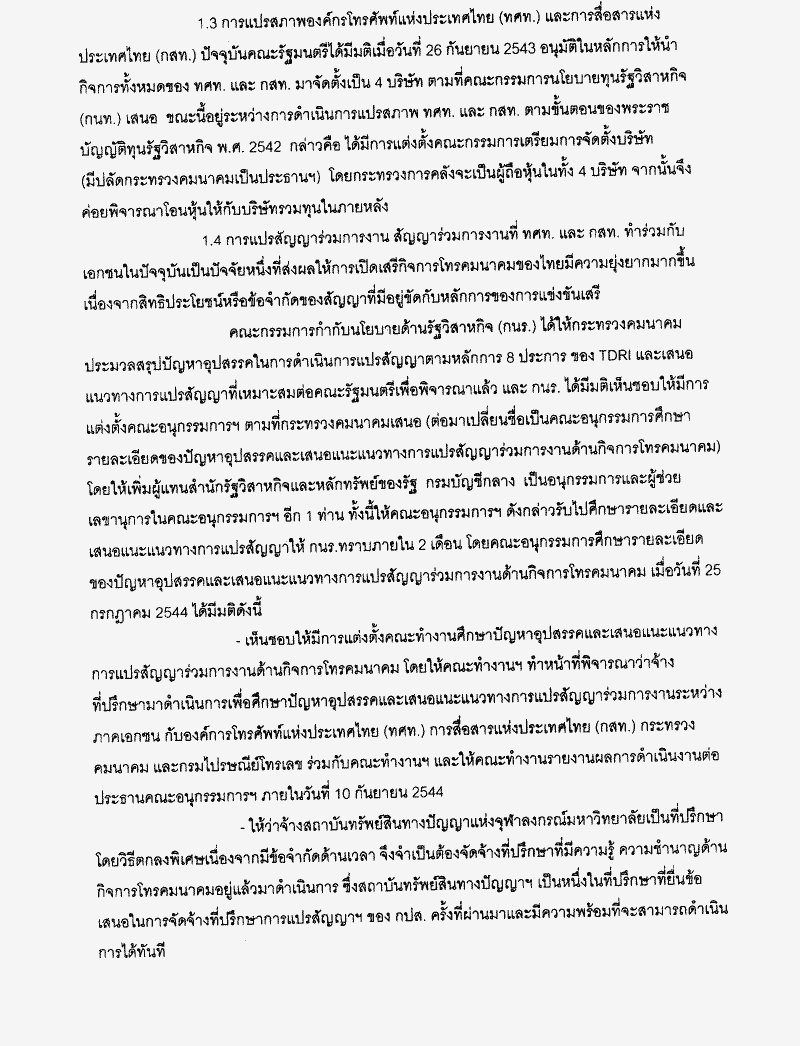 1.3 การแปรสภาพองค์กรโทรศัพท์แห่งประเทศไทย (ทศท.) และการสื่อสารแห่ง
ประเทศไทย (กสท.) ปัจจุบันคณะรัฐมนตรีได้มีมติเมื่อวันที่ 26 กันยายน 2543 อนุมัติในหลักการให้นำ
กิจการทั้งหมดของ ทศท. และ กสท. มาจัดตั้งเป็น 4 บริษัท ตามที่คณะกรรมการนโยบายทุนรัฐวิสาหกิจ
(กนท.) เสนอ ขณะนี้อยู่ระหว่างการดำเนินการแปรสภาพ ทศท. และ กสท. ตามขั้นตอนของพระราช
บัญญัติทุนรัฐวิสาหกิจ พ.ศ. 2542 กล่าวคือ ได้มีการแต่งตั้งคณะกรรมการเตรียมการจัดตั้งบริษัท
(มีปลัดกระทรวงคมนาคมเป็นประธานฯ) โดยกระทรวงการคลังจะเป็นผู้ถือหุ้นในทั้ง 4 บริษัท จากนั้นจึง
ค่อยพิจารณาโอนหุ้นให้กับบริษัทรวมทุนในภายหลัง
1.4 การแปรสัญญาร่วมการงาน สัญญาร่วมการงานที่ ทศท. และ กสท. ทำร่วมกับ
เอกชนในปัจจุบันเป็นปัจจัยหนึ่งที่ส่งผลให้การเปิดเสรีกิจการโทรคมนาคมของไทยมีความยุ่งยากมากขึ้น
เนื่องจากสิทธิประโยชน์หรือข้อจำกัดของสัญญาที่มีอยู่ขัดกับหลักการของการแข่งขันเสรี
คณะกรรมการกำกับนโยบายด้านรัฐวิสาหกิจ (กนร.) ได้ให้กระทรวงคมนาคม
ประมวลสรุปปัญหาอุปสรรคในการดำเนินการแปรสัญญาตามหลักการ 8 ประการ ของ TDRI และเสนอ
แนวทางการแปรสัญญาที่เหมาะสมต่อคณะรัฐมนตรีเพื่อพิจารณาแล้ว และ กนร. ได้มีมติเห็นชอบให้มีการ
แต่งตั้งคณะอนุกรรมการฯ ตามที่กระทรวงคมนาคมเสนอ (ต่อมาเปลี่ยนชื่อเป็นคณะอนุกรรมการศึกษา
รายละเอียดของปัญหาอุปสรรคและเสนอแนะแนวทางการแปรสัญญาร่วมการงานด้านกิจการโทรคมนาคม)
โดยให้เพิ่มผู้แทนสำนักรัฐวิสาหกิจและหลักทรัพย์ของรัฐ กรมบัญชีกลาง เป็นอนุกรรมการและผู้ช่วย
เลขานุการในคณะอนุกรรมการฯ อีก 1 ท่าน ทั้งนี้ให้คณะอนุกรรมการฯ ดังกล่าวรับไปศึกษารายละเอียดและ
เสนอแนะแนวทางการแปรสัญญาให้ กนร.ทราบภายใน 2 เดือน โดยคณะอนุกรรมการศึกษารายละเอียด
ของปัญหาอุปสรรคและเสนอแนะแนวทางการแปรสัญญาร่วมการงานด้านกิจการโทรคมนาคม เมื่อวันที่ 25
กรกฎาคม 2544 ได้มีมติดังนี้
- เห็นชอบให้มีการแต่งตั้งคณะทำงานศึกษาปัญหาอุปสรรคและเสนอแนะแนวทาง
การแปรสัญญาร่วมการงานด้านกิจการโทรคมนาคม โดยให้คณะทำงานฯ ทำหน้าที่พิจารณาว่าจ้าง
ที่ปรึกษามาดำเนินการเพื่อศึกษาปัญหาอุปสรรคและเสนอแนะแนวทางการแปรสัญญาร่วมการงานระหว่าง
ภาคเอกชน กับองค์การโทรศัพท์แห่งประเทศไทย (ทศท.) การสื่อสารแห่งประเทศไทย (กสท.) กระทรวง
คมนาคม และกรมไปรษณีย์โทรเลข ร่วมกับคณะทำงานฯ และให้คณะทำงานรายงานผลการดำเนินงานต่อ
ประธานคณะอนุกรรมการฯ ภายในวันที่ 10 กันยายน 2544
- ให้ว่าจ้างสถาบันทรัพย์สินทางปัญญาแห่งจุฬาลงกรณ์มหาวิทยาลัยเป็นที่ปรึกษา
โดยวิธีตกลงพิเศษเนื่องจากมีข้อจำกัดด้านเวลา จึงจำเป็นต้องจัดจ้างที่ปรึกษาที่มีความรู้ ความชำนาญด้าน
กิจการโทรคมนาคมอยู่แล้วมาดำเนินการ ซึ่งสถาบันทรัพย์สินทางปัญญาฯ เป็นหนึ่งในที่ปรึกษาที่ยื่นข้อ
เสนอในการจัดจ้างที่ปรึกษาการแปรสัญญาฯ ของ กปส. ครั้งที่ผ่านมาและมีความพร้อมที่จะสามารถดำเนิน
การได้ทันที